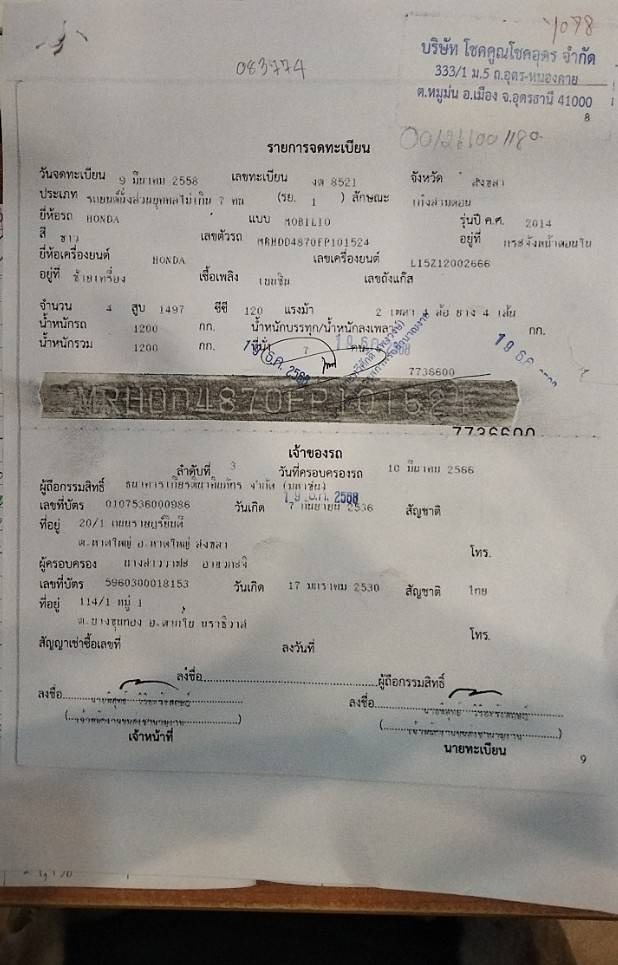 1078
083774
บริษัท โชคคูณโชคอุดร จำกัด
333/1 ม.5 ถ.อุดร-หนองคาย
ต.หมูม่น อ.เมือง จ.อุดรธานี 41000
8
รายการจดทะเบียน
วันจดทะเบียน 9 มีนาคม 2558 เลขทะเบียน งด 8521 จังหวัด สงขลา
ประเภท รถยนต์นั่งส่วนบุคคลไม่เกิน 7 คน (รย. 1 ) ลักษณะ เก๋งสามตอน
ยี่ห้อรถ HONDA แบบ MOBILIO รุ่นปี ค.ศ. 2014
สี ขาว เลขตัวรถ MRHDD4870FP101524 อยู่ที่ กระจังหน้าตอนใน
ยี่ห้อเครื่องยนต์ HONDA เลขเครื่องยนต์ L15Z12002666
อยู่ที่ ซ้ายเครื่อง เชื้อเพลิง เบนซิน เลขถังแก๊ส
จำนวน 4 สูบ 1497 ซีซี 120 แรงม้า 2 เพลา 4 ล้อ ยาง 4 เส้น
น้ำหนักรถ 1200 กก. น้ำหนักบรรทุก/น้ำหนักลงเพลา กก.
น้ำหนักรวม 1200 กก. ที่นั่ง 7 คน
19 ธ.ค. 2568
19 ธ.ค.
7736600
MRHDD4870FP101524
7736600
เจ้าของรถ
ลำดับที่ 3 วันที่ครอบครองรถ 10 มีนาคม 2566
ผู้ถือกรรมสิทธิ์ ธนาคารเกียรตินาคินภัทร จำกัด (มหาชน)
19 ธ.ค. 2568
เลขที่บัตร 0107536000986 วันเกิด 7 กันยายน 2536 สัญชาติ
ที่อยู่ 20/1 ถนนราษฎร์ยินดี
ต.หาดใหญ่ อ.หาดใหญ่ สงขลา
โทร.
ผู้ครอบครอง
เลขที่บัตร 5960300018153 วันเกิด 17 มกราคม 2530 สัญชาติ ไทย
ที่อยู่ 114/1 หมู่ 1
ต.บางขุนทอง อ.ตากใบ นราธิวาส
โทร.
สัญญาเช่าซื้อเลขที่ ลงวันที่
ลงชื่อ ผู้ถือกรรมสิทธิ์
ลงชื่อ ลงชื่อ
เจ้าหน้าที่ นายทะเบียน
9